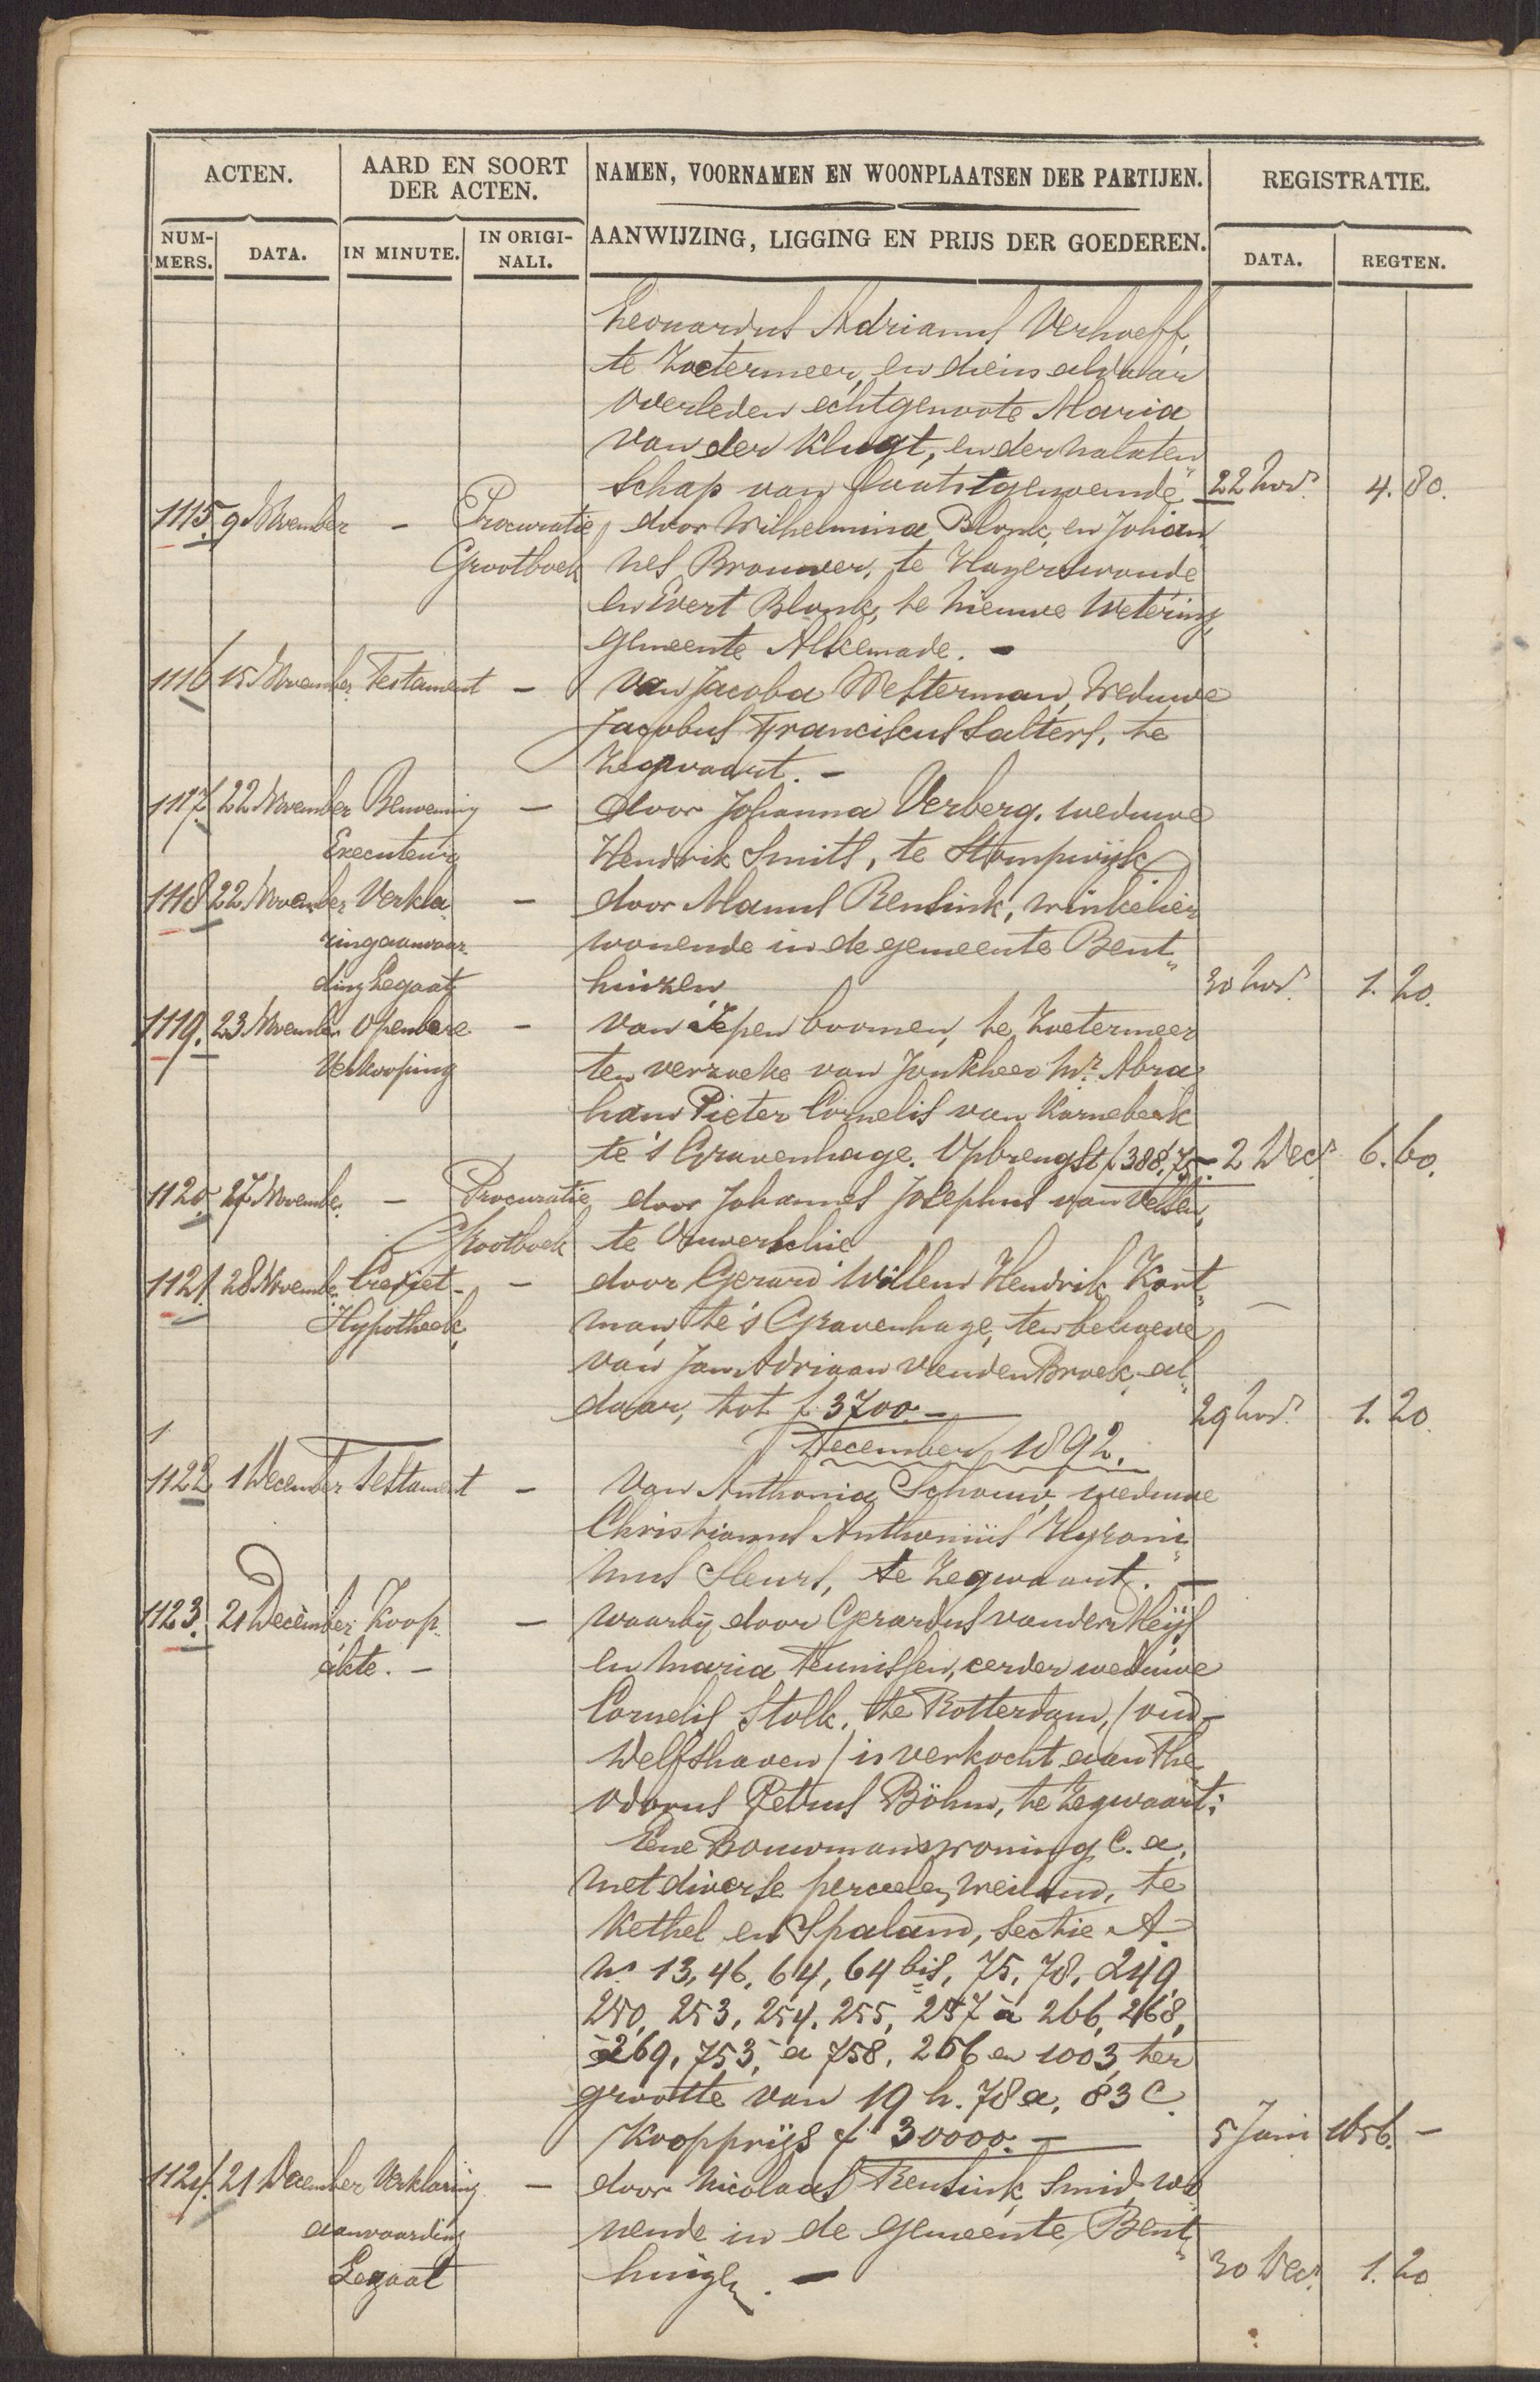 ACTEN.
AARD EN SOORT
DER ACTEN.
NAMEN, VOORNAMEN EN WOONPLAATSEN DER PARTIJEN.
REGISTRATIE.
NUM-
MERS.
DATA.
IN MINUTE.
IN ORIGI-
NALI.
AANWIJZING, LIGGING EN PRIJS DER GOEDEREN.
DATA.
REGTEN.
Leonardus Adrianus Verhoeff,
te Zoetermeer, en diens aldaar
overleden echtgenoote Maria
van der Klugt, en der nalaten„
schap van laatstgenoemde 22 Nov.r 4. 80.
1115. 9 November - Procuratie door Wilhelmina Blonk, en Johan„
Grootboek nes Brouwer, te Hazerswoude
en Evert Blonk, te Nieuwe Wetering,
gemeente Alkemade. -
1116 15 November Testament - van Jacoba Westerman, Weduwe
Jacobus Franciscus Salters, te
Zegwaart. -
1117. 22 November Benoeming - door Johanna Verberg, weduwe
Executeurs Hendrik Smits, te Stompwijk
1118 22 November Verkla„ - door Manus Rensink, winkelier
ring aanvaar„ wonende in de gemeente Bent„
ding Legaat huizen 30 Nov.r 1. 20.
1119. 23 November Openbare - van Iepen boomen, te Zoetermeer
Verkooping ten verzoeke van Jonkheer Mr. Abra„
ham Pieter Cornelis van Karnebeek
te 's Gravenhage. Opbrengst f 388,75.- 2 Dec.r 6. 60.
1120. 27 November - Procuratie door Johannes Josephus van Velsen,
Grootboek te Ouverschie
1121. 28 November Crediet- - door Gerard Willem Hendrik Kort„
Hypotheek, man, te 's Gravenhage, ten behoeve
van Jan Adriaan van den Broek, al„
daar, tot f 3700.- 29 Nov.r 1. 20.
December 1892.
1122 1 December Testament - Van Anthonia Schouw, weduwe
Christianus Anthonius Hyroni„
mus Sleurs, te Zegwaart. -
1123. 21 December Koop„ - waarbij door Gerardus van der Meijs
akte. - en Maria Teunissen, eerder weduwe
Cornelis Stolk, te Rotterdam, (oud-
Delfshaven) is verkocht aan The„
odorus Petrus Böhm, te Zegwaart:
Eene Bouwmanswoning c. a.
met diverse perceelen weiland, te
Kethel en Spaland, sectie A
No 13, 46, 64, 64 bis, 75, 78, 249,
250, 253, 254, 255, 257 à 266, 268,
à 269, 753, à 758, 256 en 1003, ter
grootte van 19 h. 78 a. 83 C.
Koopprijs f 30000.- 5 Jani 1656. -
1124. 21 December Verklaring - door Nicolaas Rensink, Smid, wo„
aanvaarding nende in de gemeente Bent„
Legaat huizen. - 30 Dec.r 1. 20